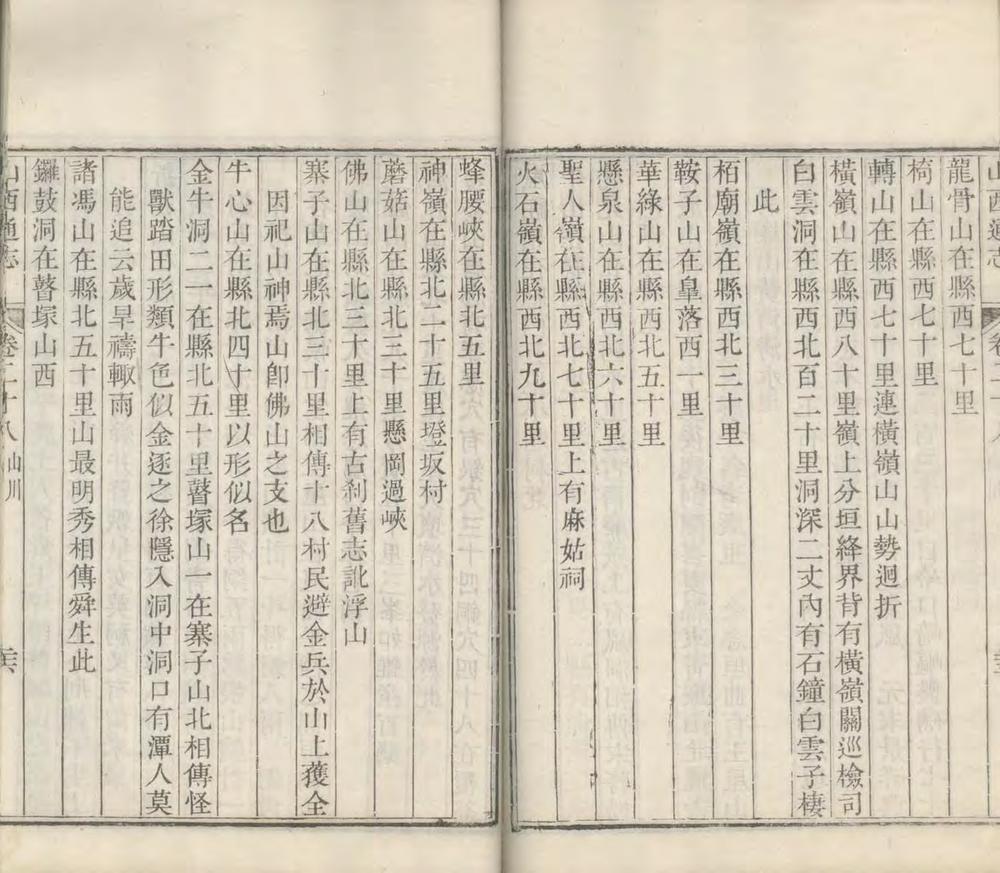 山西通志
龍骨山在縣西七十里
椅山在縣西七十里
轉山在縣西七十里連橫嶺山山勢迴折
橫嶺山在縣西八十里嶺上分垣絳界背有橫嶺關巡檢司
白雲洞在縣西北百二十里洞深二丈內有石鐘白雲子棲
此
栢廟嶺在縣西北三十里
鞍子山在皐落西一里
華綠山在縣西北五十里
懸泉山在縣西北六十里
聖人嶺在縣西北七十里上有麻姑祠
火石嶺在縣西北九十里
蜂腰峽在縣北五里
神嶺在縣北二十五里墱坂村
蘑菇山在縣北三十里懸岡過峽
佛山在縣北三十里上有古刹舊志訛浮山
寨子山在縣北三十里相傳十八村民避金兵於山上獲全
因祀山神焉山卽佛山之支也
牛心山在縣北四十里以形似名
金牛洞二一在縣北五十里瞽塚山一在寨子山北相傳怪
獸踏田形類牛色似金逐之徐隱入洞中洞口有潭人莫
能追云歲旱禱輙雨
諸馮山在縣北五十里山最明秀相傳舜生此
鑼鼓洞在瞽塚山西
山西通志 卷二十八 山川